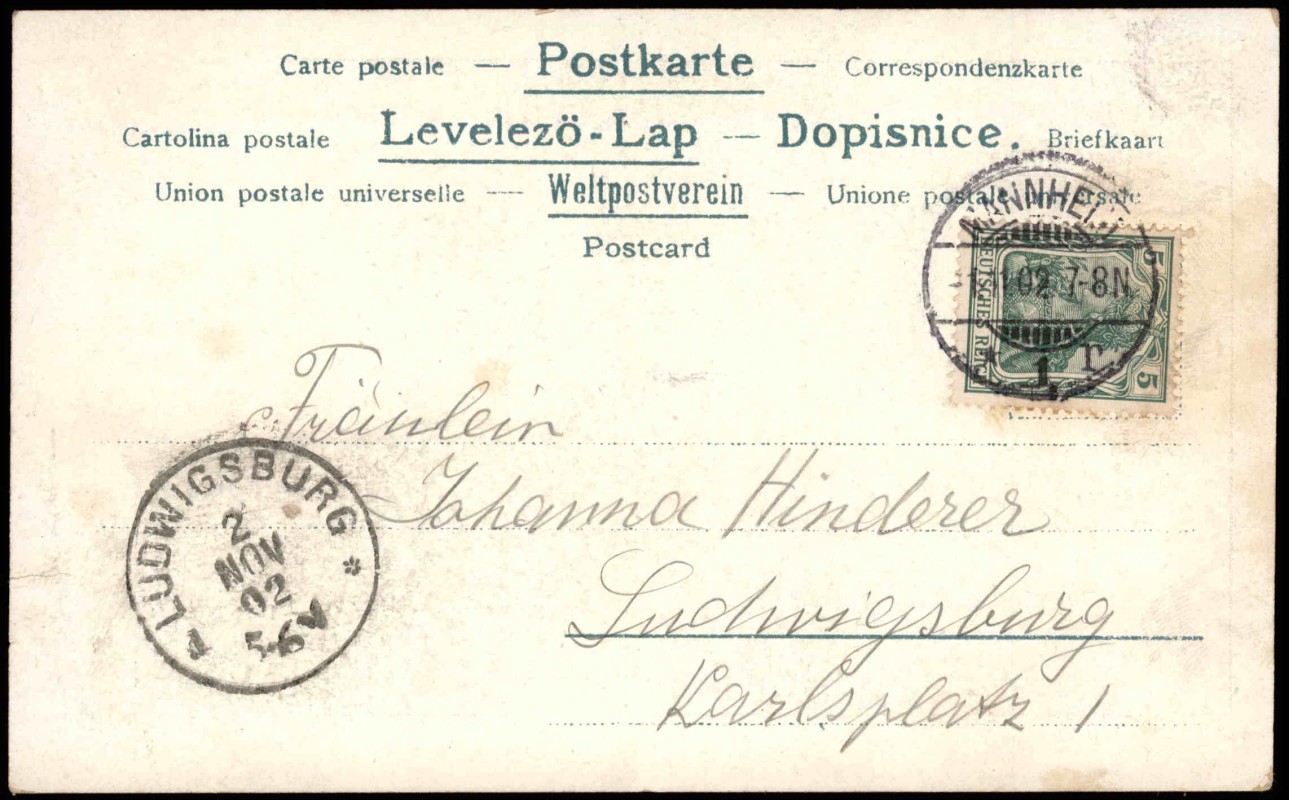 Carte postale — Postkarte — Correspondenzkarte
Cartolina postale Levelezö-Lap — Dopisnice. Briefkaart
Union postale universelle — Weltpostverein — Unione postale universale
Postcard
MANNHEIM
02 7-8N
* 1 r.
DEUTSCHES REICH
5
5
Fräulein
Johanna Hinderer
Ludwigsburg
Karlsplatz 1
LUDWIGSBURG *
2
NOV
02
5-6V
1